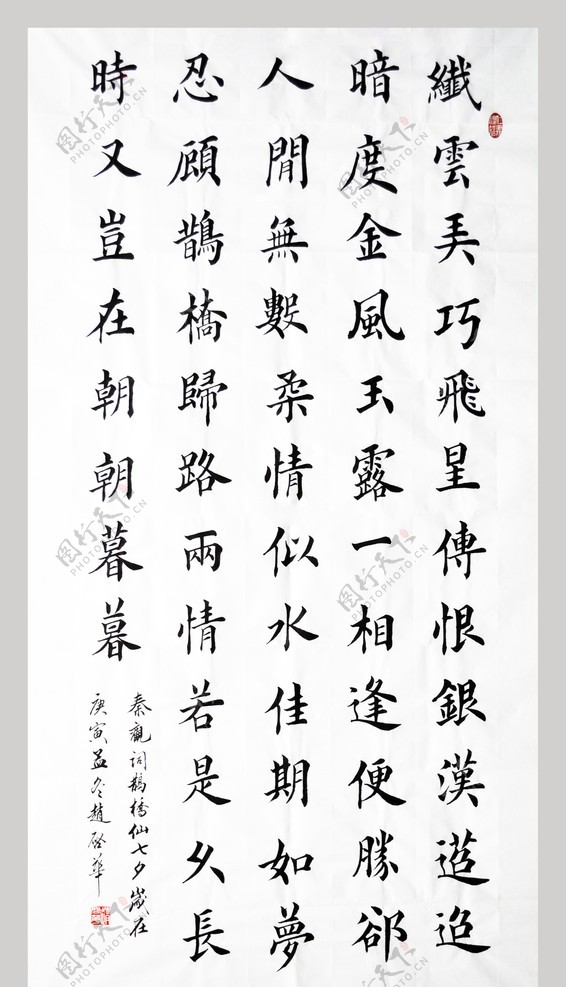 纖雲弄巧飛星傳恨銀漢迢迢
暗度金風玉露一相逢便勝郤
人閒無數柔情似水佳期如夢
忍顧鵲橋歸路兩情若是久長
時又豈在朝朝暮暮
秦觀词鵲橋仙七夕歲在
庚寅孟冬趙啓華
图行天下
PHOTOPHOTO.CN